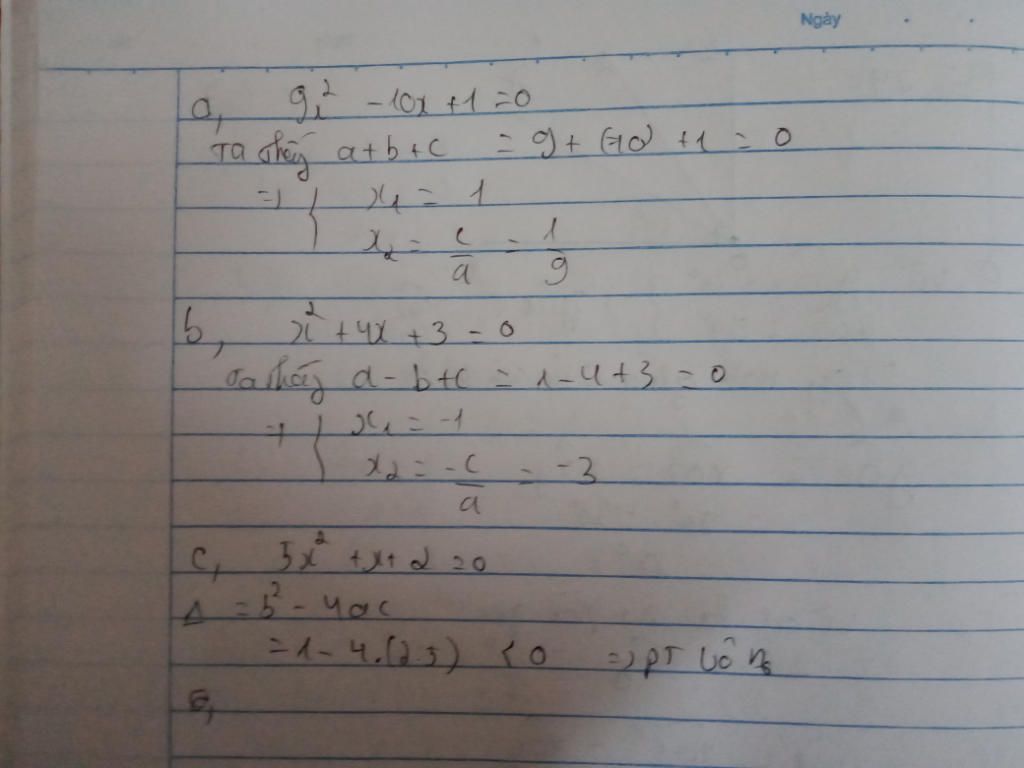 Ngày
a, 9x² - 10x + 1 = 0
Ta thấy a + b + c = 9 + (-10) + 1 = 0
=> { x₁ = 1
x₂ = c/a = 1/9
b, x² + 4x + 3 = 0
Ta thấy a - b + c = 1 - 4 + 3 = 0
=> { x₁ = -1
x₂ = -c/a = -3
c, 5x² + x + 2 = 0
Δ = b² - 4ac
= 1 - 4.(2.5) < 0 => PT vô n₀